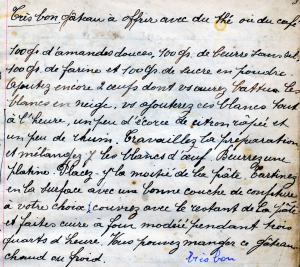 Très bon gâteau à offrir avec du thé ou du café
100gs. d'amandes douces, 100gs. de beurre
100gs. de farine et 100gs. de sucre en poudre.
Ajoutez encore 2 œufs dont vs aurez battus les
blancs en neige, vs ajouterez ces blancs tout
à l'heure, un peu d'écorce de citron râpée et
un peu de rhum. Travaillez la préparation
et mélangez y les blancs d'œuf. Beurrez une
platine. Placez-y la moitié de la pâte. Tartinez
en la surface avec une bonne couche de confiture
à votre choix, couvrez avec le restant de la pâte
et faites cuire à four modéré pendant trois
quarts d'heure. Vous pouvez manger ce gâteau
chaud ou froid. très bon